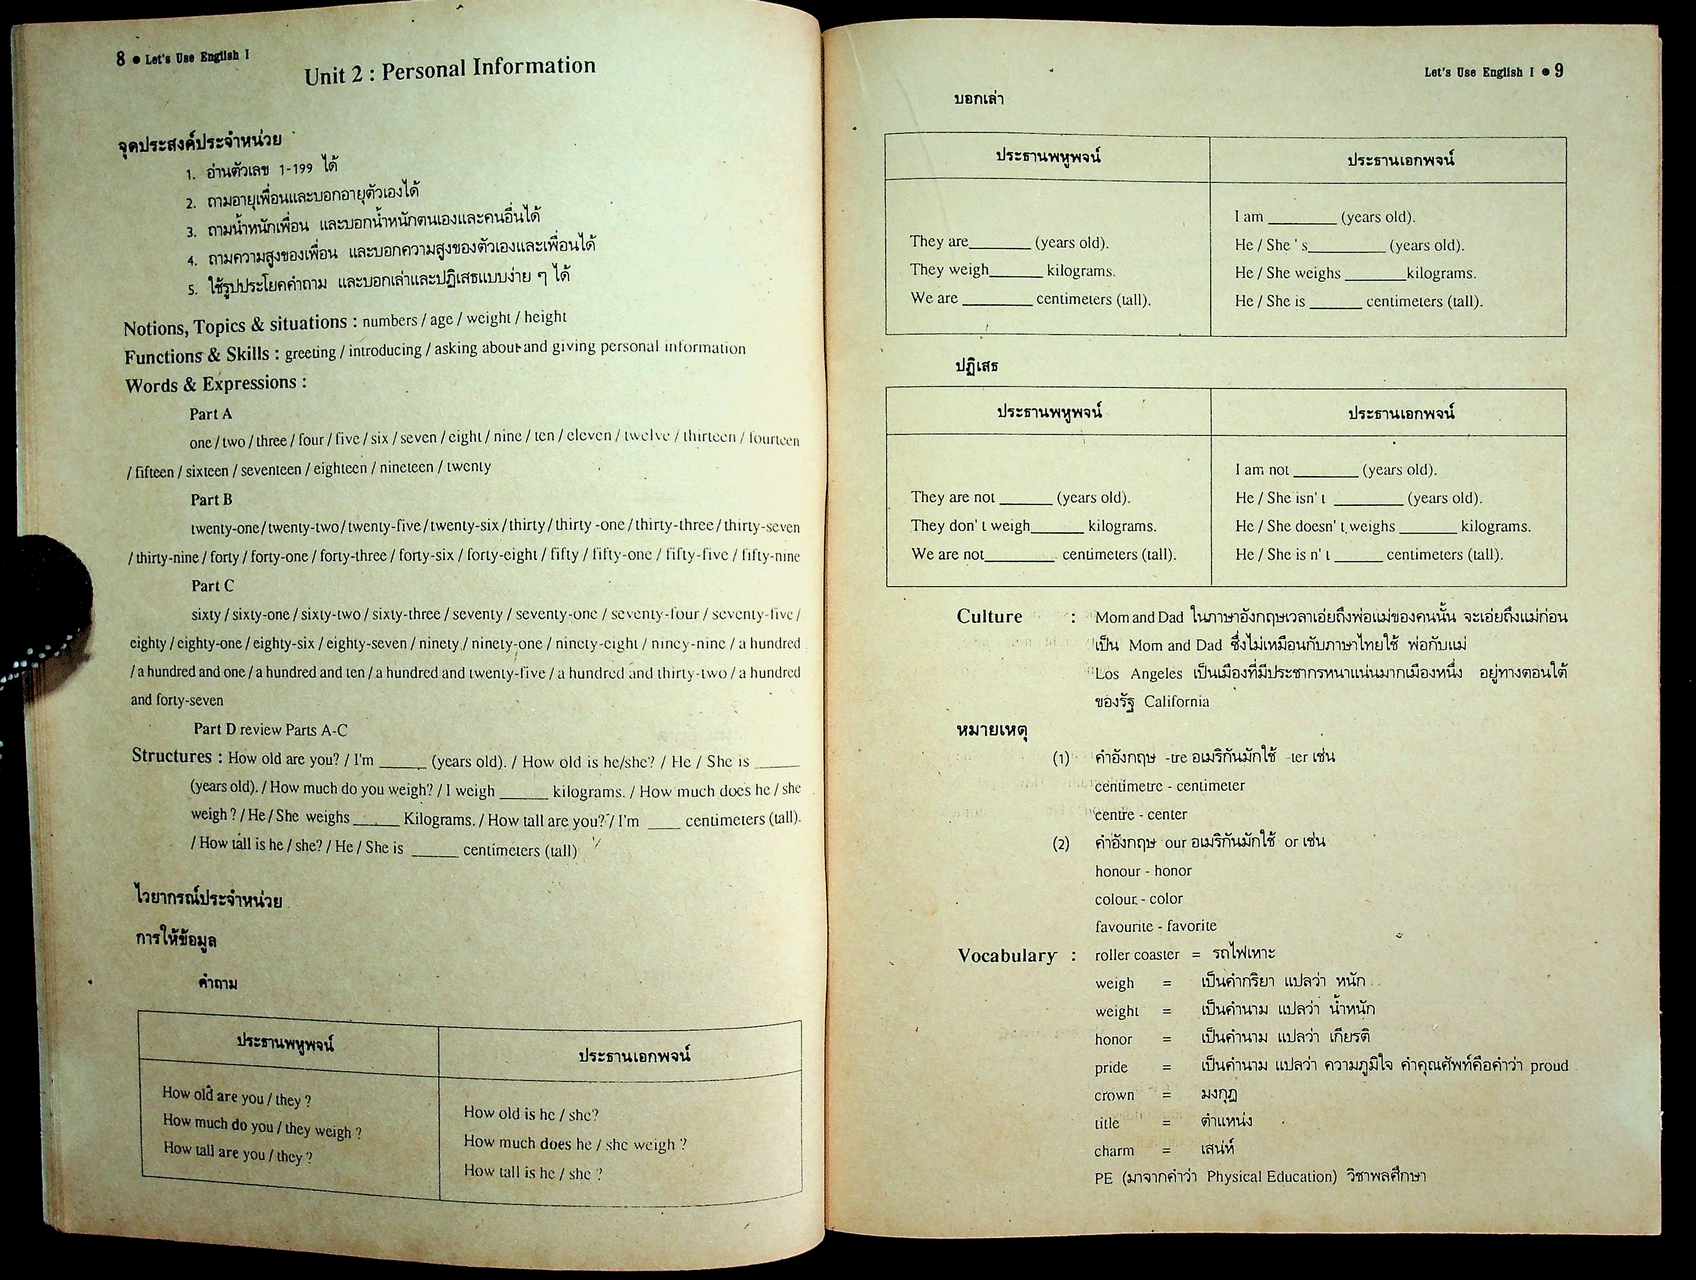 8 ● Let's Use English I
Unit 2 : Personal Information
จุดประสงค์ประจำหน่วย
1. อ่านตัวเลข 1-199 ได้
2. ถามอายุเพื่อนและบอกอายุตัวเองได้
3. ถามน้ำหนักเพื่อน และบอกน้ำหนักตนเองและคนอื่นได้
4. ถามความสูงของเพื่อน และบอกความสูงของตัวเองและเพื่อนได้
5. ใช้รูปประโยคคำถาม และบอกเล่าและปฏิเสธแบบง่าย ๆ ได้
Notions, Topics & situations : numbers / age / weight / height
Functions & Skills : greeting / introducing / asking about and giving personal information
Words & Expressions :
Part A
one / two / three / four / five / six / seven / eight / nine / ten / eleven / twelve / thirteen / fourteen
/ fifteen / sixteen / seventeen / eighteen / nineteen / twenty
Part B
twenty-one / twenty-two / twenty-five / twenty-six / thirty / thirty -one / thirty-three / thirty-seven
/ thirty-nine / forty / forty-one / forty-three / forty-six / forty-eight / fifty / fifty-one / fifty-five / fifty-nine
Part C
sixty / sixty-one / sixty-two / sixty-three / seventy / seventy-one / seventy-four / seventy-five /
eighty / eighty-one / eighty-six / eighty-seven / ninety / ninety-one / ninety-eight / ninety-nine / a hundred
/ a hundred and one / a hundred and ten / a hundred and twenty-five / a hundred and thirty-two / a hundred
and forty-seven
Part D review Parts A-C
Structures : How old are you? / I'm _____ (years old). / How old is he/she? / He / She is _____
(years old). / How much do you weigh? / I weigh _____ kilograms. / How much does he / she
weigh ? / He / She weighs _____ Kilograms. / How tall are you? / I'm ____ centimeters (tall).
/ How tall is he / she? / He / She is _____ centimeters (tall)
ไวยากรณ์ประจำหน่วย
การให้ข้อมูล
คำถาม
ประธานพหูพจน์
How old are you / they ?
How much do you / they weigh ?
How tall are you / they ?
ประธานเอกพจน์
How old is he / she?
How much does he / she weigh ?
How tall is he / she ?
Let's Use English I ● 9
บอกเล่า
ประธานพหูพจน์
They are_______ (years old).
They weigh______ kilograms.
We are ________ centimeters (tall).
ประธานเอกพจน์
I am ________ (years old).
He / She ' s_________ (years old).
He / She weighs _______kilograms.
He / She is ______ centimeters (tall).
ปฏิเสธ
ประธานพหูพจน์
They are not ______ (years old).
They don' t weigh______ kilograms.
We are not________ centimeters (tall).
ประธานเอกพจน์
I am not _______ (years old).
He / She isn' t ________ (years old).
He / She doesn' t weighs _______ kilograms.
He / She is n' t ______ centimeters (tall).
Culture : Mom and Dad ในภาษาอังกฤษเวลาเอ่ยถึงพ่อแม่ของคนนั้น จะเอ่ยถึงแม่ก่อน
เป็น Mom and Dad ซึ่งไม่เหมือนกับภาษาไทยใช้ พ่อกับแม่
Los Angeles เป็นเมืองที่มีประชากรหนาแน่นมากเมืองหนึ่ง อยู่ทางตอนใต้
ของรัฐ California
หมายเหตุ
(1) คำอังกฤษ -tre อเมริกันมักใช้ -ter เช่น
centimetre - centimeter
centre - center
(2) คำอังกฤษ our อเมริกันมักใช้ or เช่น
honour - honor
colour - color
favourite - favorite
Vocabulary : roller coaster = รถไฟเหาะ
weigh = เป็นคำกริยา แปลว่า หนัก
weight = เป็นคำนาม แปลว่า น้ำหนัก
honor = เป็นคำนาม แปลว่า เกียรติ
pride = เป็นคำนาม แปลว่า ความภูมิใจ คำคุณศัพท์คือคำว่า proud
crown = มงกุฎ
title = ตำแหน่ง
charm = เสน่ห์
PE (มาจากคำว่า Physical Education) วิชาพลศึกษา